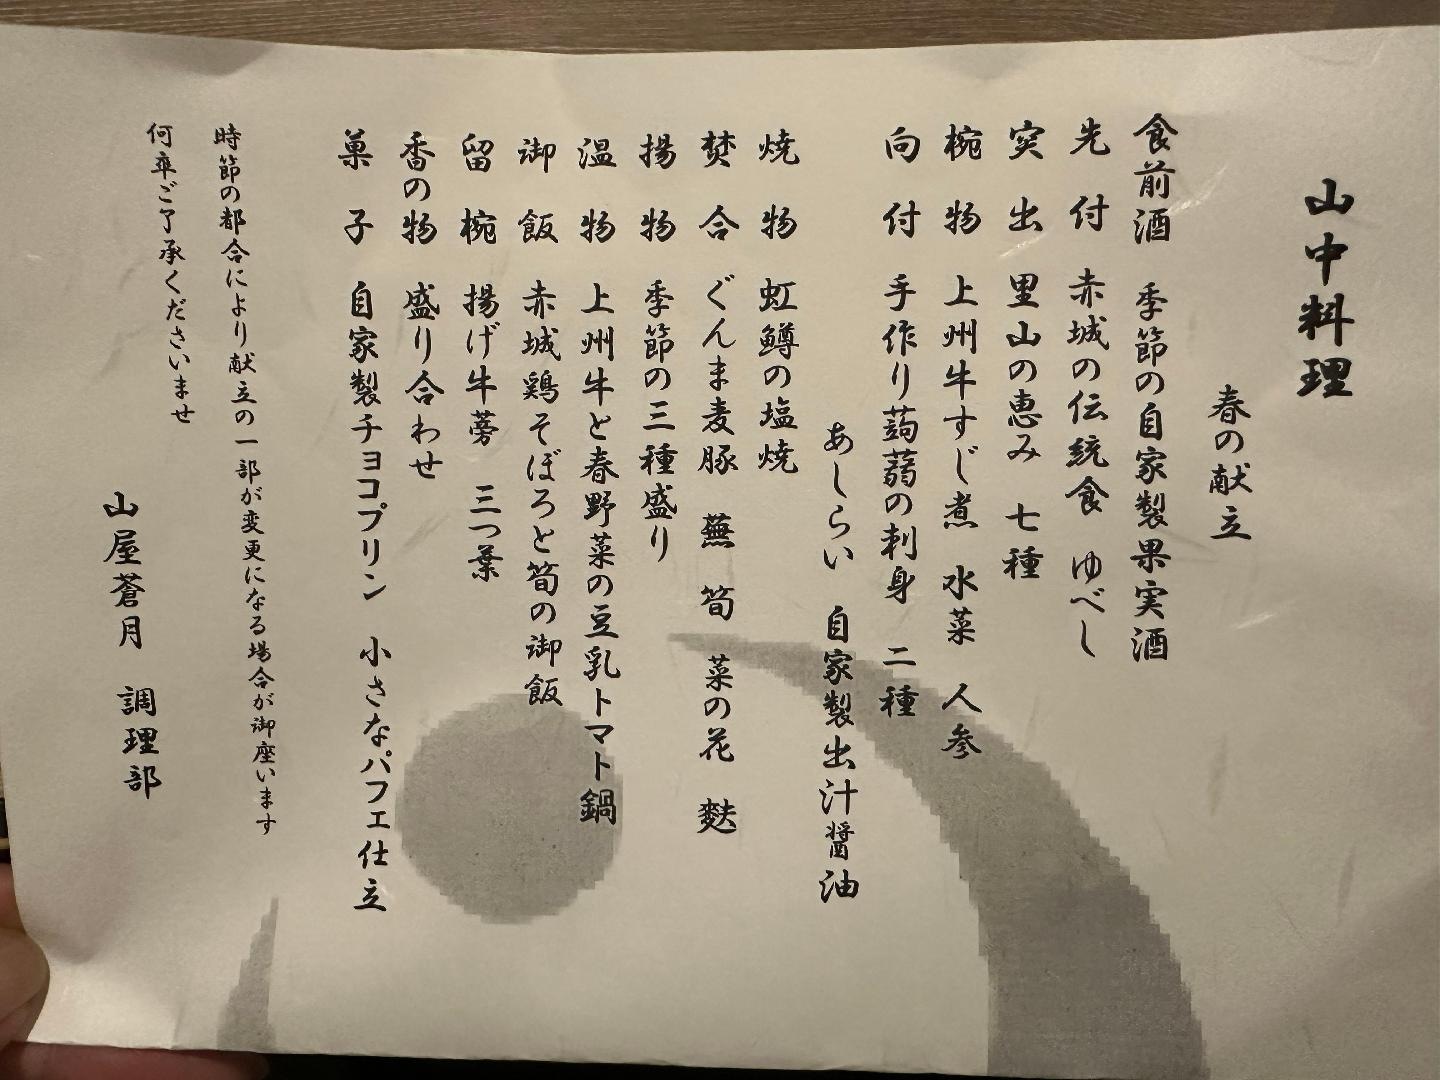 山中料理
春の献立
食前酒　季節の自家製果実酒
先付　赤城の伝統食　ゆべし
突出　里山の恵み　七種
椀物　上州牛すじ煮　水菜　人参
向付　手作り蒟蒻の刺身　二種
あしらい　自家製出汁醤油
焼物　虹鱒の塩焼
焚合　ぐんま麦豚　蕪　筍　菜の花　麩
揚物　季節の三種盛り
温物　上州牛と春野菜の豆乳トマト鍋
御飯　赤城鶏そぼろと筍の御飯
留椀　揚げ牛蒡　三つ葉
香の物　盛り合わせ
菓子　自家製チョコプリン　小さなパフェ仕立
時節の都合により献立の一部が変更になる場合が御座います
何卒ご了承くださいませ
山屋蒼月　調理部